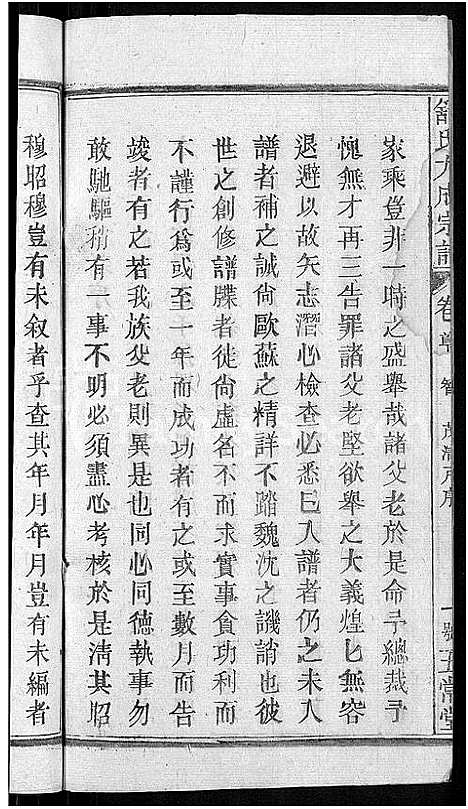 舒氏大成宗譜
卷首
智
一號
五常堂
家乘豈非一時之盛舉哉諸父老於是命予總裁予
愧無才再三告罪諸父老堅欲舉之大義煌匕無容
退避以故矢志潛心檢查必悉已入譜者仍之未入
譜者補之誠尙歐蘇之精詳不踏魏沈之譏誚也豈
世之創修譜牒者徒尙虛名不而求實事貪功利而
不謹行爲或至一年而成功者有之或至數月而告
竣者有之若我族父老則異是也同心同德執事勿
敢馳驅稍有一事不明必須盡心考核於是淸其昭
穆昭穆豈有未叙者乎查其年月年月豈有未編者